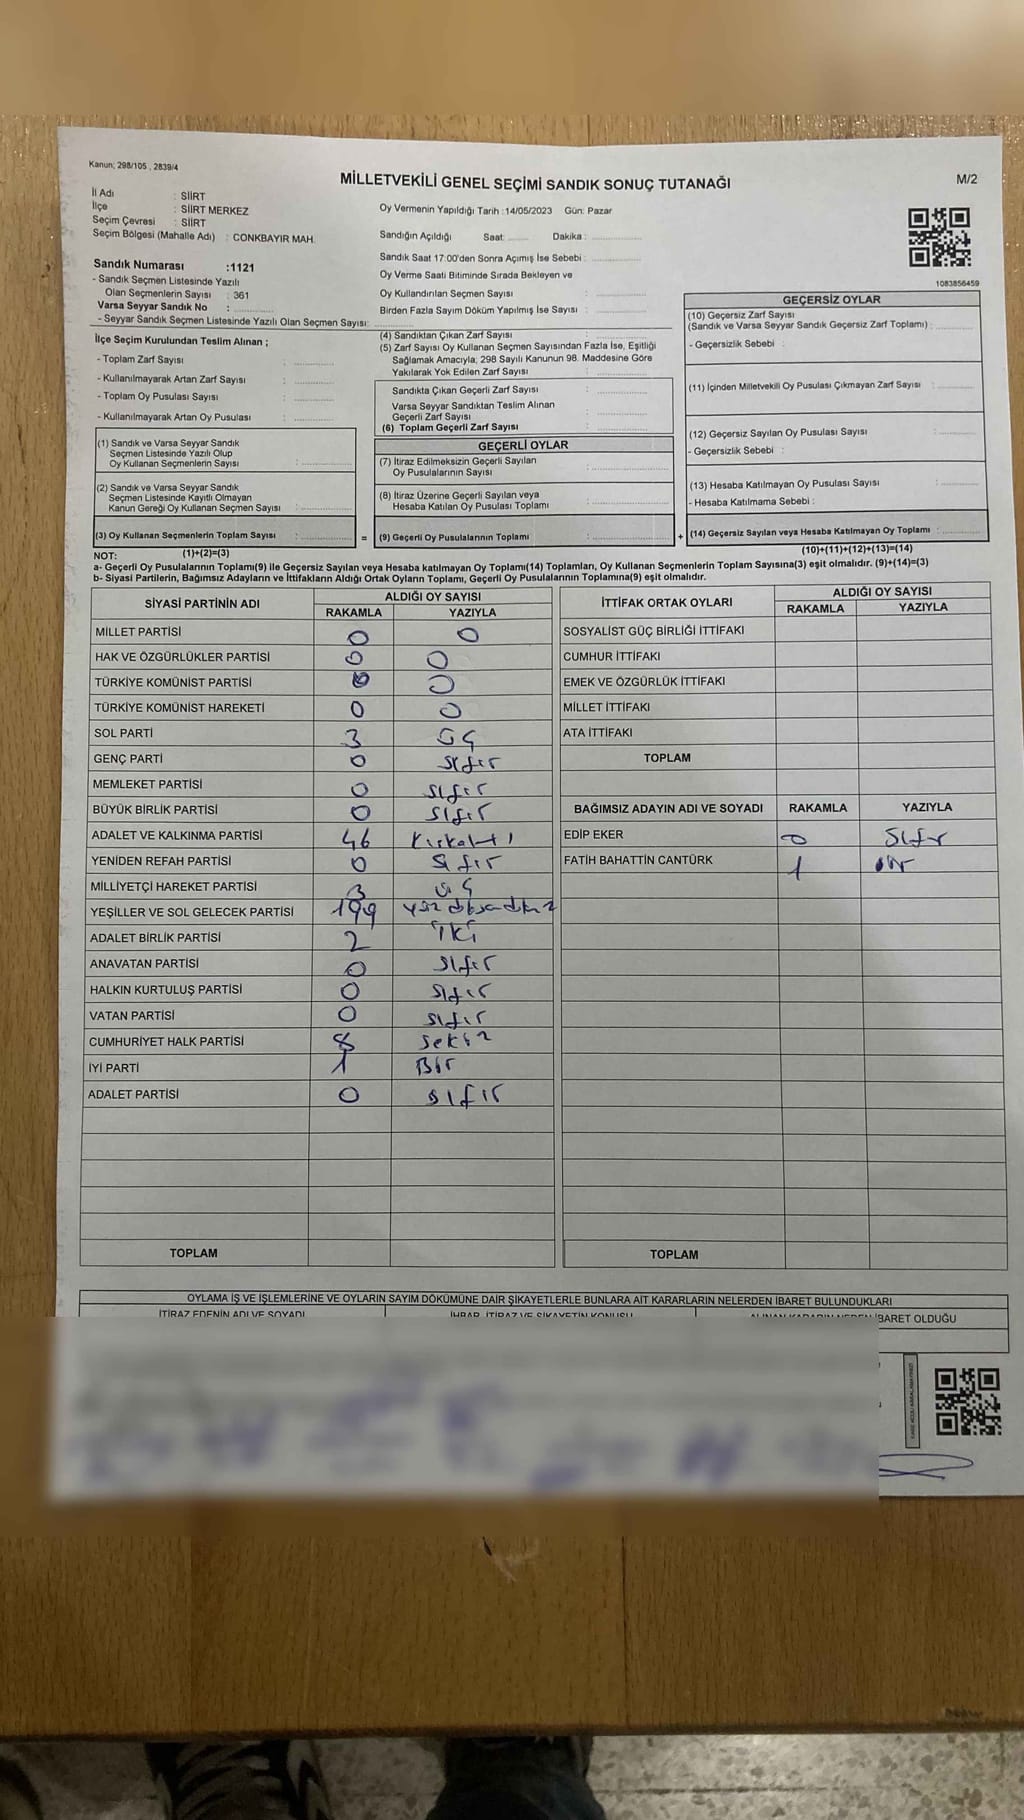 Kanun; 298/105 , 2839/4
MİLLETVEKİLİ GENEL SEÇİMİ SANDIK SONUÇ TUTANAĞI
M/2
İl Adı : SİİRT
İlçe : SİİRT MERKEZ
Seçim Çevresi : SİİRT
Seçim Bölgesi (Mahalle Adı) : CONKBAYIR MAH.
Sandık Numarası :1121
- Sandık Seçmen Listesinde Yazılı
Olan Seçmenlerin Sayısı : 361
Varsa Seyyar Sandık No :
- Seyyar Sandık Seçmen Listesinde Yazılı Olan Seçmen Sayısı:
Oy Vermenin Yapıldığı Tarih :14/05/2023 Gün: Pazar
Sandığın Açıldığı Saat: Dakika :
Sandık Saat 17:00'den Sonra Açımış İse Sebebi :
Oy Verme Saati Bitiminde Sırada Bekleyen ve
Oy Kullandırılan Seçmen Sayısı :
Birden Fazla Sayım Döküm Yapılmış İse Sayısı :
1083856459
İlçe Seçim Kurulundan Teslim Alınan ;
- Toplam Zarf Sayısı :
- Kullanılmayarak Artan Zarf Sayısı :
- Toplam Oy Pusulası Sayısı :
- Kullanılmayarak Artan Oy Pusulası :
(1) Sandık ve Varsa Seyyar Sandık
Seçmen Listesinde Yazılı Olup
Oy Kullanan Seçmenlerin Sayısı :
(2) Sandık ve Varsa Seyyar Sandık
Seçmen Listesinde Kayıtlı Olmayan
Kanun Gereği Oy Kullanan Seçmen Sayısı :
(3) Oy Kullanan Seçmenlerin Toplam Sayısı :
=
(4) Sandıktan Çıkan Zarf Sayısı :
(5) Zarf Sayısı Oy Kullanan Seçmen Sayısından Fazla İse, Eşitliği
Sağlamak Amacıyla; 298 Sayılı Kanunun 98. Maddesine Göre
Yakılarak Yok Edilen Zarf Sayısı :
Sandıkta Çıkan Geçerli Zarf Sayısı :
Varsa Seyyar Sandıktan Teslim Alınan
Geçerli Zarf Sayısı :
(6) Toplam Geçerli Zarf Sayısı :
GEÇERLİ OYLAR
(7) İtiraz Edilmeksizin Geçerli Sayılan
Oy Pusulalarının Sayısı :
(8) İtiraz Üzerine Geçerli Sayılan veya
Hesaba Katılan Oy Pusulası Toplamı :
(9) Geçerli Oy Pusulalarının Toplamı :
+
GEÇERSİZ OYLAR
(10) Geçersiz Zarf Sayısı
(Sandık ve Varsa Seyyar Sandık Geçersiz Zarf Toplamı) :
- Geçersizlik Sebebi :
(11) İçinden Milletvekili Oy Pusulası Çıkmayan Zarf Sayısı :
(12) Geçersiz Sayılan Oy Pusulası Sayısı :
- Geçersizlik Sebebi :
(13) Hesaba Katılmayan Oy Pusulası Sayısı :
- Hesaba Katılmama Sebebi :
(14) Geçersiz Sayılan veya Hesaba Katılmayan Oy Toplamı :
NOT: (1)+(2)=(3)
(10)+(11)+(12)+(13)=(14)
a- Geçerli Oy Pusulalarının Toplamı(9) ile Geçersiz Sayılan veya Hesaba katılmayan Oy Toplamı(14) Toplamları, Oy Kullanan Seçmenlerin Toplam Sayısına(3) eşit olmalıdır. (9)+(14)=(3)
b- Siyasi Partilerin, Bağımsız Adayların ve İttifakların Aldığı Ortak Oyların Toplamı, Geçerli Oy Pusulalarının Toplamına(9) eşit olmalıdır.
SİYASİ PARTİNİN ADI ALDIĞI OY SAYISI
RAKAMLA YAZIYLA
MİLLET PARTİSİ 0 0
HAK VE ÖZGÜRLÜKLER PARTİSİ 0 0
TÜRKİYE KOMÜNİST PARTİSİ 0 0
TÜRKİYE KOMÜNİST HAREKETİ 0 0
SOL PARTİ 3 üç
GENÇ PARTİ 0 sıfır
MEMLEKET PARTİSİ 0 sıfır
BÜYÜK BİRLİK PARTİSİ 0 sıfır
ADALET VE KALKINMA PARTİSİ 46 Kırkaltı
YENİDEN REFAH PARTİSİ 0 sıfır
MİLLİYETÇİ HAREKET PARTİSİ 3 üç
YEŞİLLER VE SOL GELECEK PARTİSİ 199
ADALET BİRLİK PARTİSİ 2 iki
ANAVATAN PARTİSİ 0 sıfır
HALKIN KURTULUŞ PARTİSİ 0 sıfır
VATAN PARTİSİ 0 sıfır
CUMHURİYET HALK PARTİSİ 8 sekiz
İYİ PARTİ 1 Bir
ADALET PARTİSİ 0 sıfır
TOPLAM
İTTİFAK ORTAK OYLARI ALDIĞI OY SAYISI
RAKAMLA YAZIYLA
SOSYALİST GÜÇ BİRLİĞİ İTTİFAKI
CUMHUR İTTİFAKI
EMEK VE ÖZGÜRLÜK İTTİFAKI
MİLLET İTTİFAKI
ATA İTTİFAKI
TOPLAM
BAĞIMSIZ ADAYIN ADI VE SOYADI RAKAMLA YAZIYLA
EDİP EKER 0 Sıfır
FATİH BAHATTİN CANTÜRK 1 bir
TOPLAM
OYLAMA İŞ VE İŞLEMLERİNE VE OYLARIN SAYIM DÖKÜMÜNE DAİR ŞİKAYETLERLE BUNLARA AİT KARARLARIN NELERDEN İBARET BULUNDUKLARI
İTİRAZ EDENİN ADI VE SOYADI İHBAR, İTİRAZ VE ŞİKAYETİN KONUSU ALINAN KARARIN NEDEN İBARET OLDUĞU